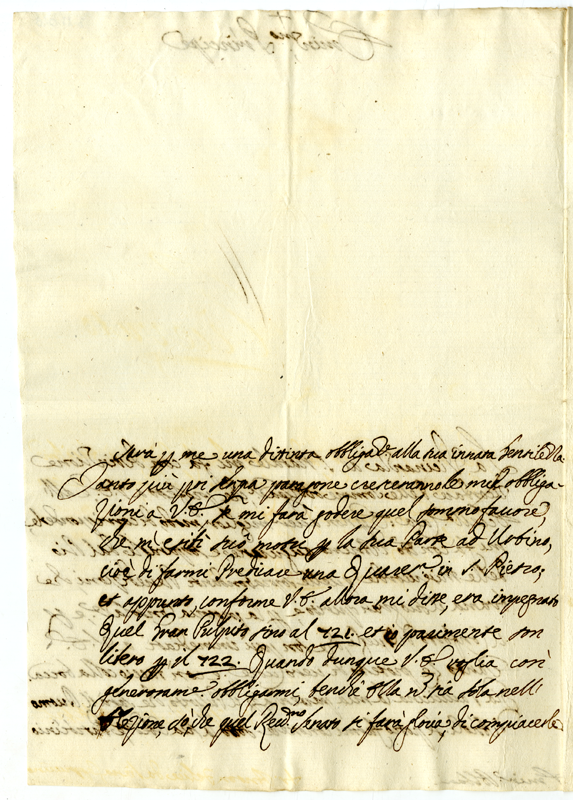 Sarà p me una distinta obbligaz.e alla sua innata Gentilezza
Tanto più
crescerannole mie obbliga-
zioni a V.E. se mi farà godere quel sommo favore,
che mi esibì sua motu p la sua Parte ad Urbino,
cioè di farmi Predicare una Quares.e in S. Pietro;
et appunto, conforme V.E. allora mi disse, era impegnato
quel Gran Pulpito sino al 721. et io parimente son
libero p il 722. Quando dunque V.E. voglia così
generosame obbligarmi, benchè Ella nò sia sola nell'
Elezione, sò che quel Reud.mo si farà gloria di compiacerle